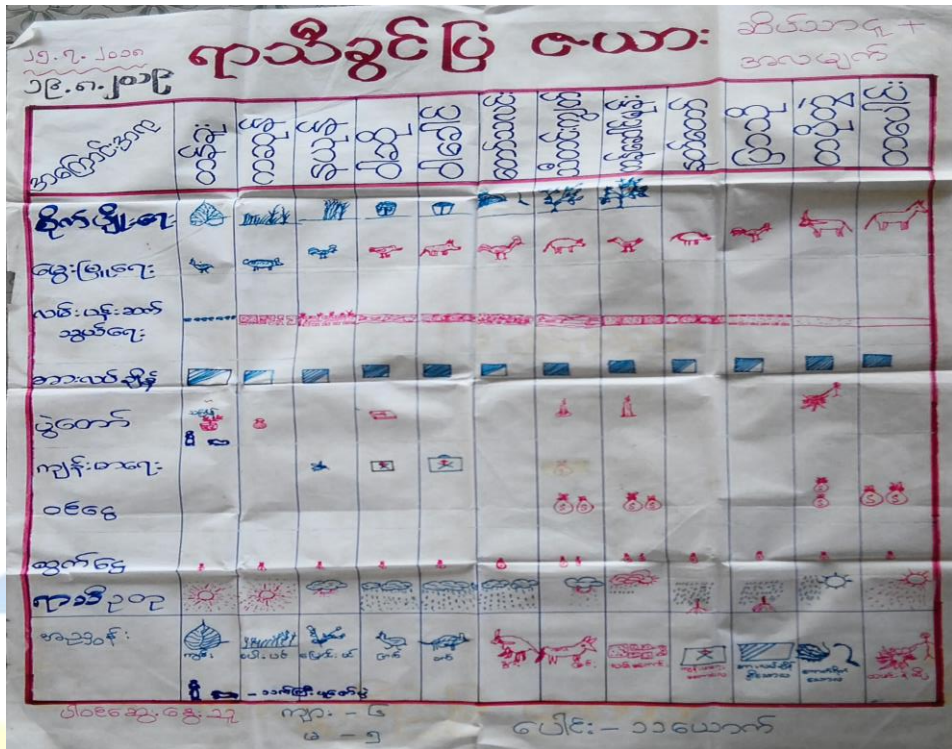 ၂၅.၇.၂၀၁၈
၁၉.၈.၂၀၁၉
ရာသီခွင်ပြ ဇယား
ဆိပ်သာငူ +
အလမျက်
အကြောင်းအရာ တန်ခူး ကဆုန် နယုန် ဝါဆို ဝါခေါင် တော်သလင်း သီတင်းကျွတ် တန်ဆောင်မုန်း နတ်တော် ပြာသို တပို့တွဲ တပေါင်း
စိုက်ပျိုးရေး
မွေးမြူရေး
လမ်းပန်းဆက်
သွယ်ရေး
အားလပ်ချိန်
ပွဲတော်
ကျန်းမာရေး
ဝင်ငွေ
ထွက်ငွေ
ရာသီဥတု
အညွှန်း
ကြက် ဝက်
ပါဝင်ဆွေးနွေးသူ ကျား - ၆
မ - ၅
ပေါင်း - ၁၁ယောက်